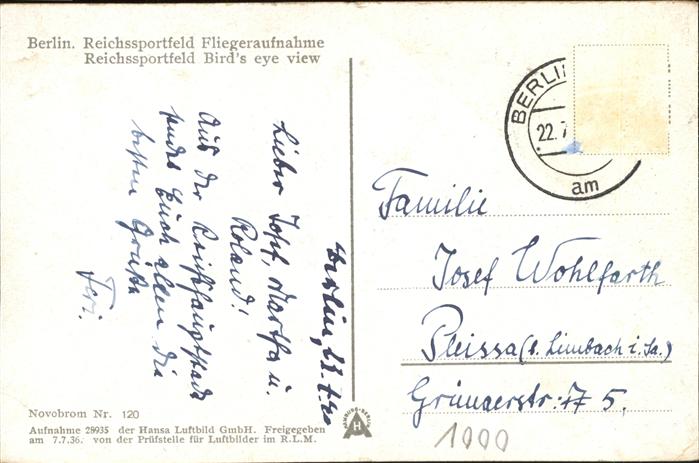 Berlin. Reichssportfeld Fliegeraufnahme
Reichssportfeld Bird's eye view
Berlin,
Lieber Josef, Martha u.
Roland!
Aus der Reichshauptstadt
sendet Euch allen die
besten Grüße
Feri.
BERLIN
22.7
am
Familie
Josef Wohlfarth
Pleissa (b. Limbach i. Sa.)
Grünaerstr. 77 5.
1000
Novobrom Nr. 120
Aufnahme 28935 der Hansa Luftbild GmbH. Freigegeben
am 7.7.36. von der Prüfstelle für Luftbilder im R.L.M.
H